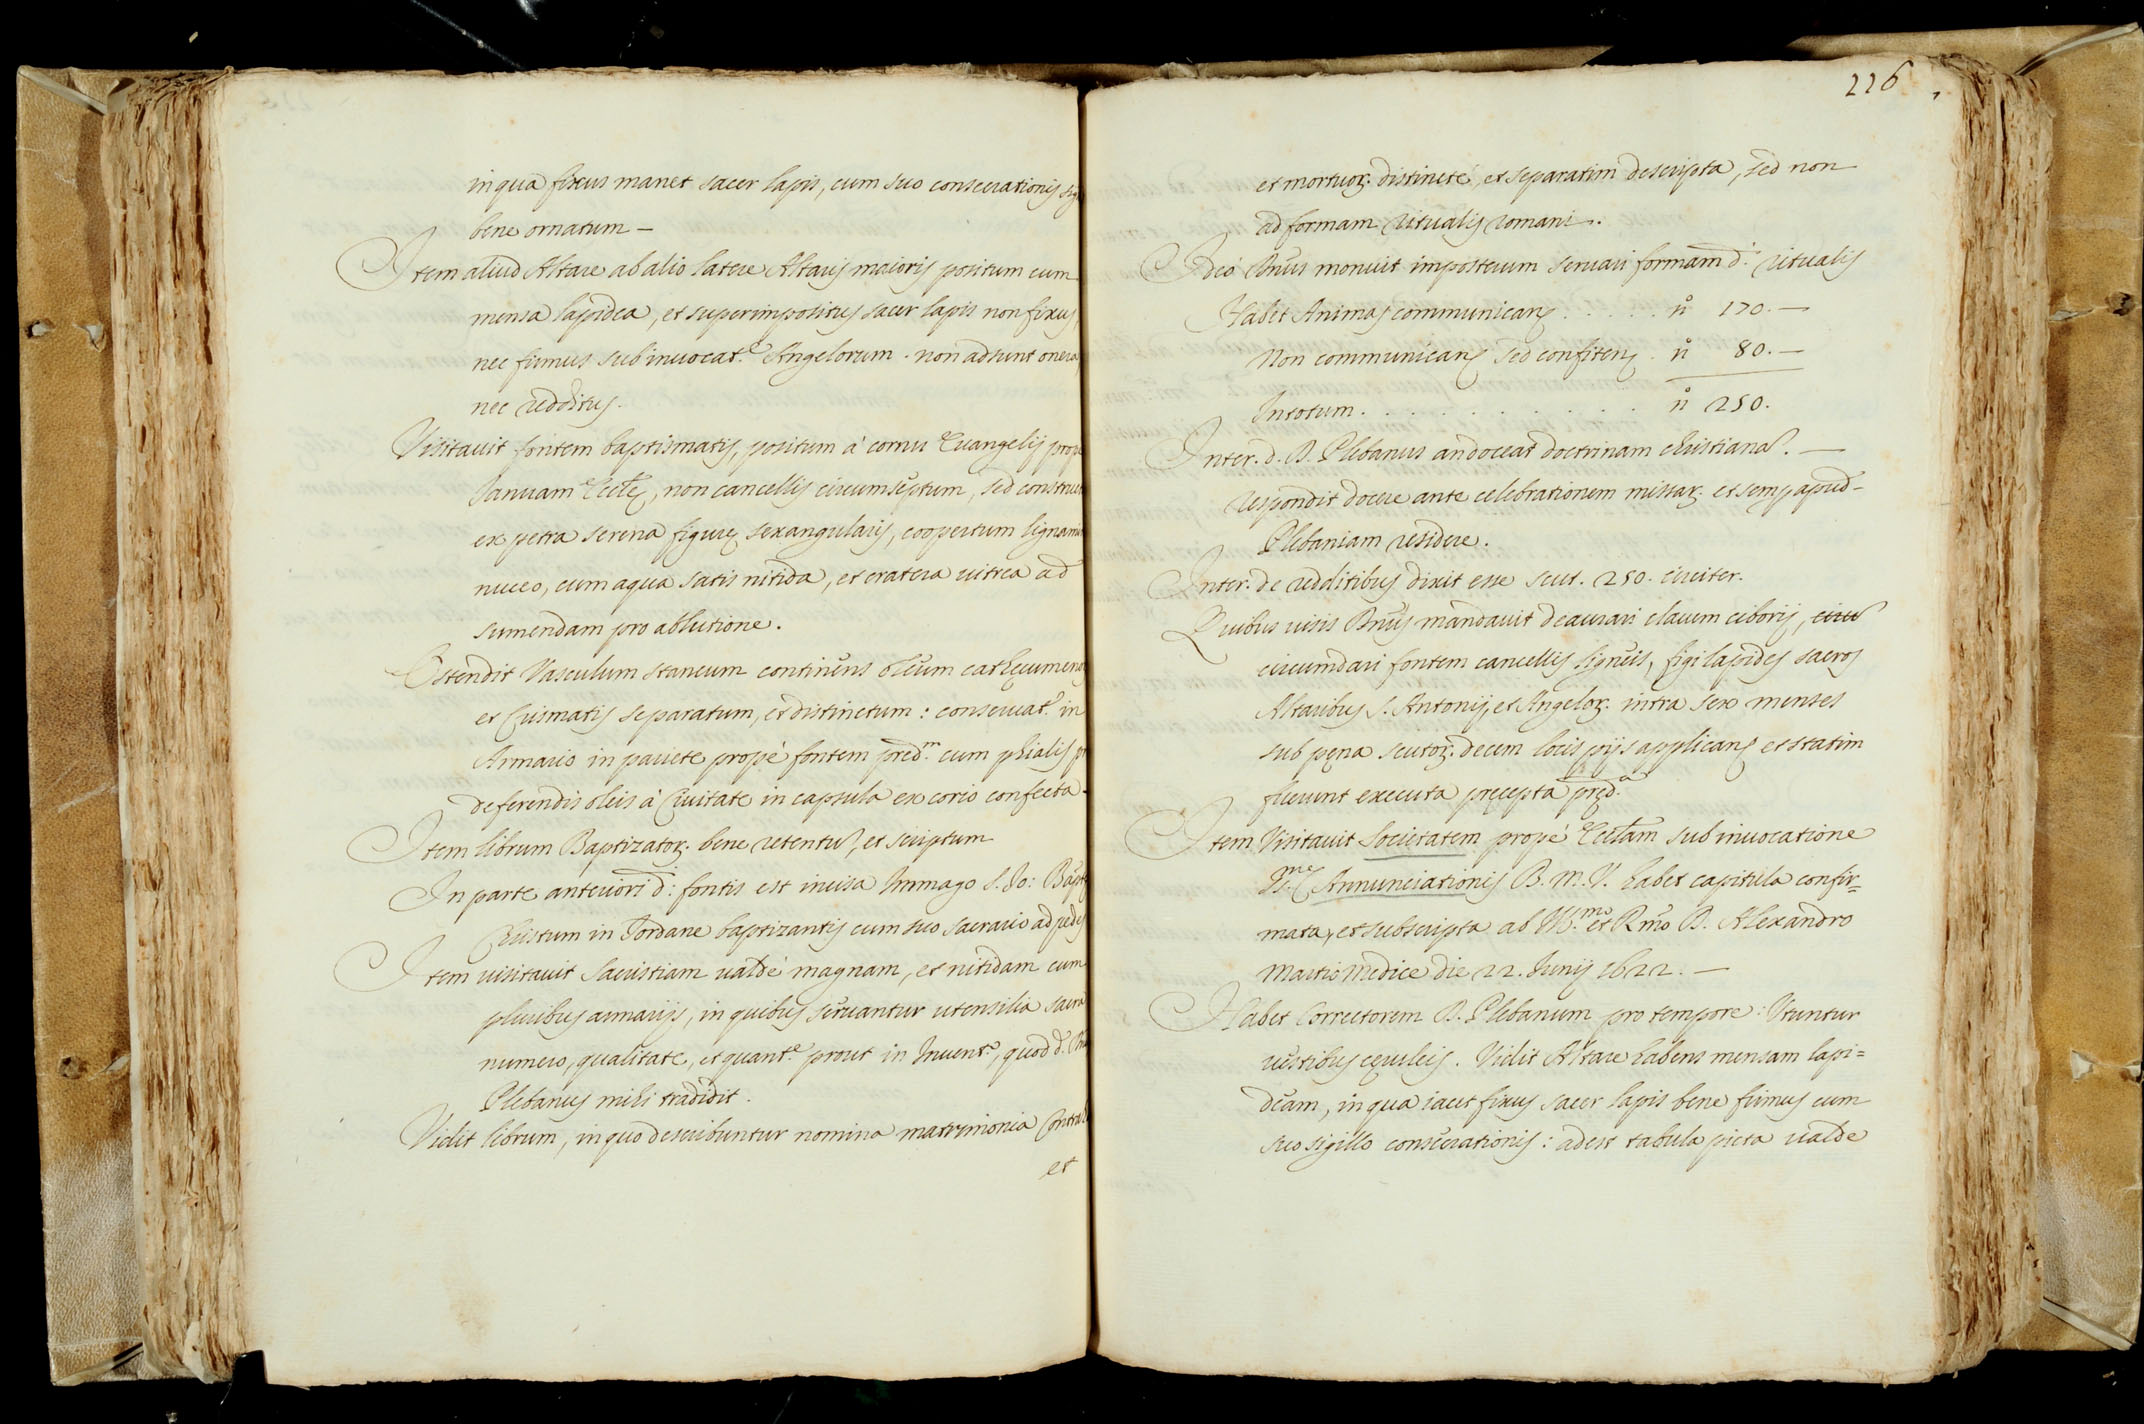 in qua fixus manet sacer lapis, cum suo consecrationis sig
bene ornatum —
Item aliud Altare ab alio latere Altaris maioris positum cum
mensa lapidea, et superimpositus sacer lapis non fixus,
nec firmus sub inuocat.e Angelorum. non adsunt onera,
nec redditus.
Visitauit fontem baptismatis, positum à cornu Euangelij prope
Ianuam Eccle, non cancellis circumseptum, sed construct
ex petra serena figurę sexangularis, coopertum lignami
nuceo, cum aqua satis nitida, et cratera uitrea ad
sumendam pro ablutione.
Ostendit Vasculum staneum continens oleum cathecumenor
et Crismatis separatum, et distinctum: conseruat.r in
Armario in pariete propè fontem pred.m cum phialis pr
deferendis oleis à Ciuitate in capsula ex corio confecta.
Item librum Baptizator. bene retentũ, et scriptum
In parte anteriori d: fontis est incisa Immago S. Io: Bapt
Christum in Iordane baptizantis cum suo sacrario ad pedes
Item uisitauit sacristiam ualdè magnam, et nitidam cum
pluribus armarijs, in quibus seruantur utensilia sacra
numero, qualitate, et quant.e prout in Inuent.o, quod d.
Plebanus mihi tradidit.
Vidit librum, in quo describuntur nomina matrimonia Contrah
et
226
et mortuor. distinctè, et separatim descripta, sed non
ad formam ritualis romani.
Ideò Dnus monuit imposterum seruari formam d. ritualis
Habet Animas communican. . . . . . n.o 170. —
Non communican. sed confiten. . n.o 80. —
Intotum . . . . . . . . . . . n.o 250.
Inter. d. D. Plebanus an doceat doctrinam christianã. —
respondit docere ante celebrationem missar. et semp. apud
Plebaniam residere.
Inter. de redditibus dixit esse scut. 250. circiter.
Quibus uisis Dnus mandauit deaurari clauem ciborij,
circumdari fontem cancellis ligneis, figi lapides sacros
Altaribus S. Antonij, et Angelor. intra sex menses
sub pęna scutor. decem locis pijs applican. et statim
fuerunt executa pręcepta pręd.a
Item Visitauit Societatem propè Ecclam sub inuocatione
SS.me Annunciationis B. M. V. habet capitula confir=
mata, et subscripta ab Ill.mo et Rmo D. Alexandro
Martio Medice die 22. Iunij 1622. —
Habet Correctorem D. Plebanum pro tempore: Vtuntur
uestibus cęruleis. Vidit Altare habens mensam lapi=
deam, in qua iacet fixus sacer lapis bene firmus cum
suo sigillo consecrationis: adest tabula picta ualde